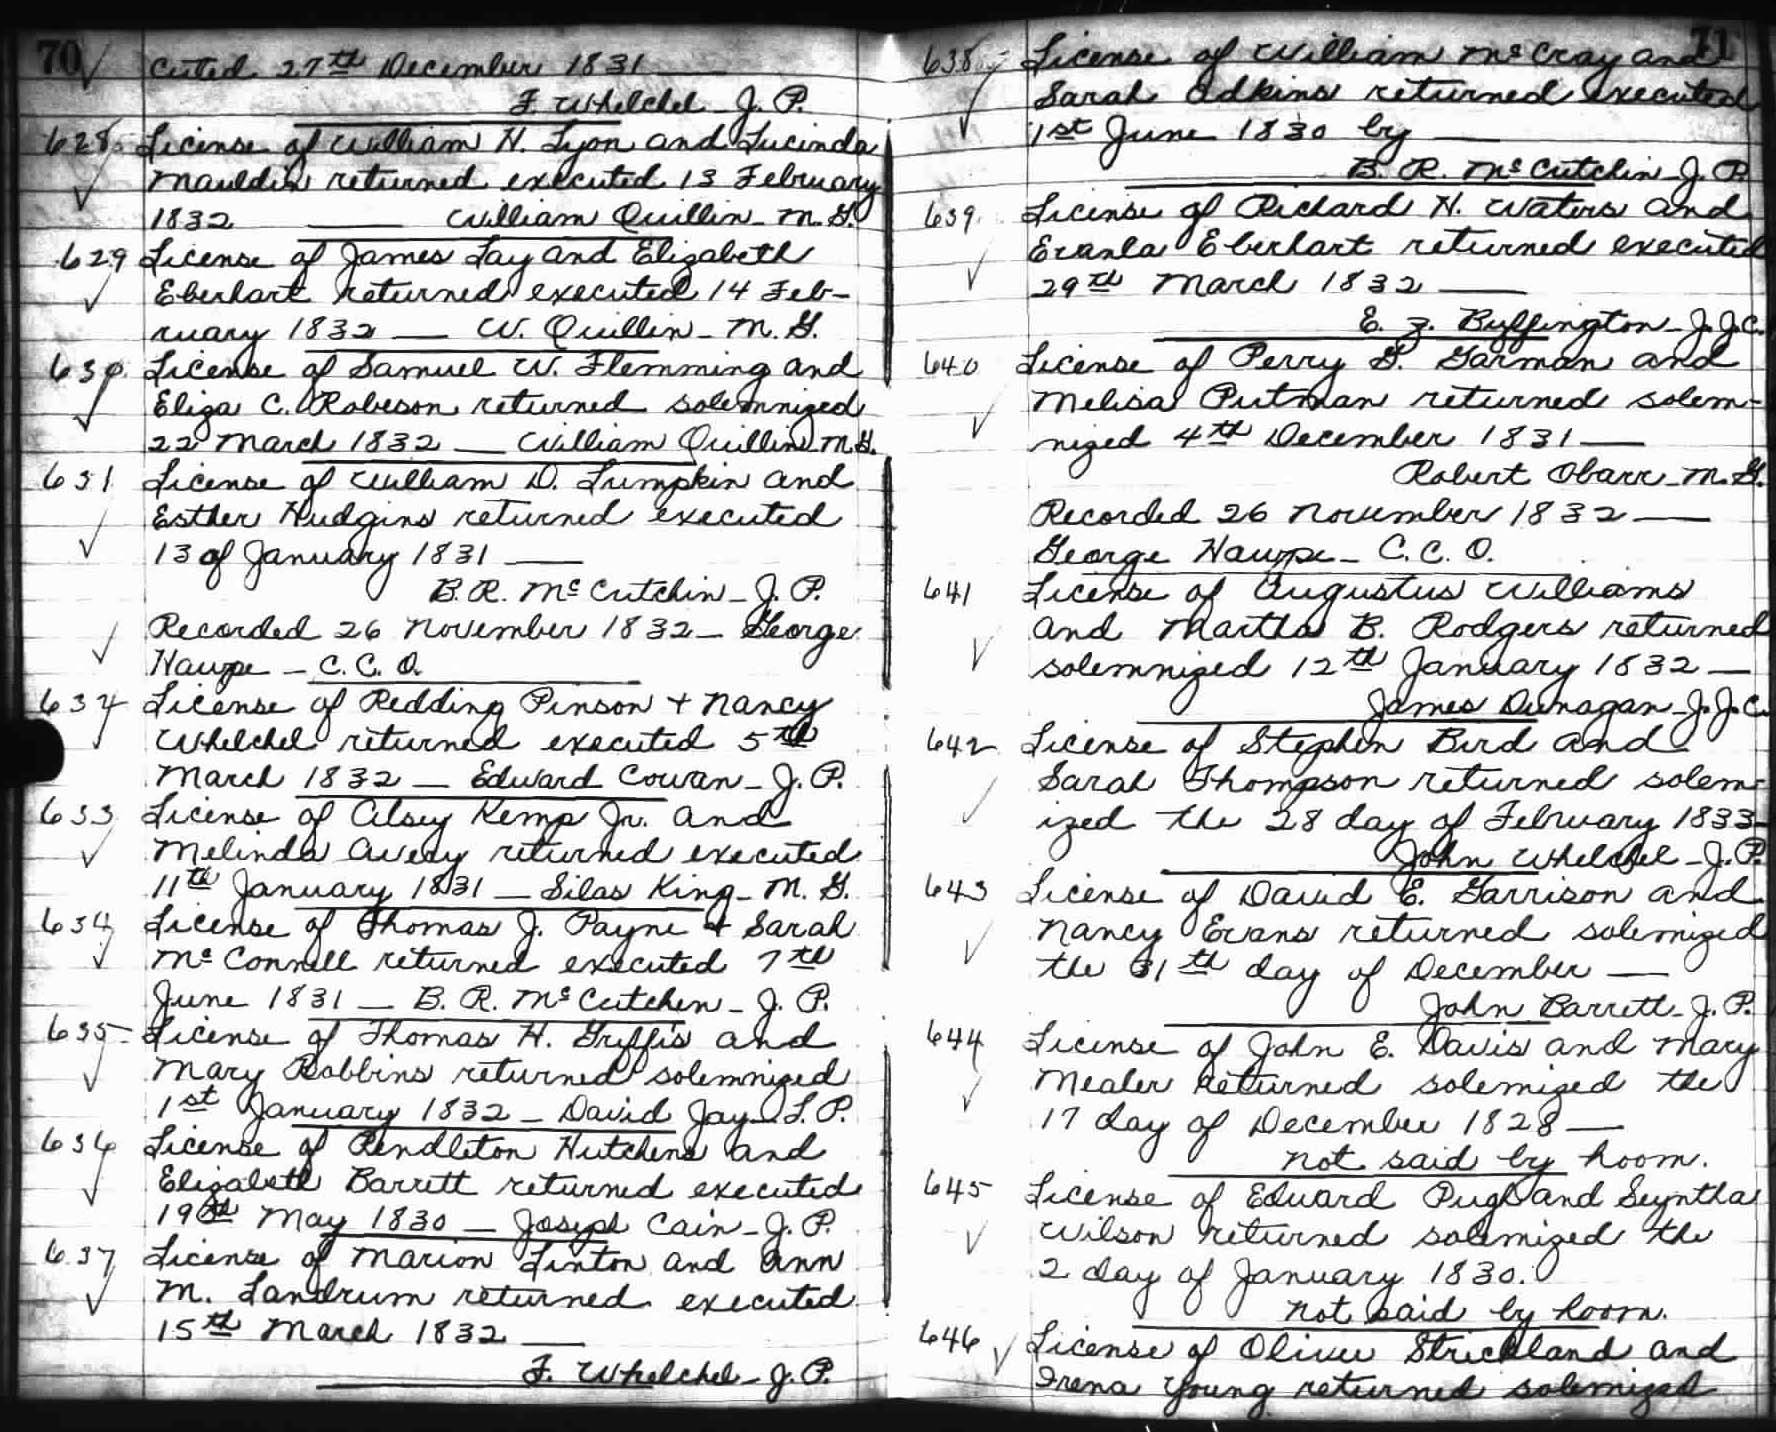 70
cuted 27th December 1831
F. Whelchel J. P.
628 License of William H. Lyon and Lucinda
Mauldin returned executed 13 February
1832 William Quillin M. G.
629 License of James Lay and Elizabeth
Eberhart returned executed 14 Feb-
ruary 1832 W. Quillin M. G.
630 License of Samuel W. Flemming and
Eliza C. Robeson returned solemnized
22 March 1832 William Quillin M. G.
631 License of William D. Lumpkin and
Esther Hudgins returned executed
13 of January 1831
B. R. McCutchin J. P.
Recorded 26 November 1832 George
Hawpe C. C. O.
632 License of Redding Pinson + Nancy
Whelchel returned executed 5th
March 1832 Edward Cowan J. P.
633 License of Alsey Kemp Jr. and
Melinda Avery returned executed
11th January 1831 Silas King M. G.
634 License of Thomas J. Payne + Sarah
McConnell returned executed 7th
June 1831 B. R. McCutchen J. P.
635 License of Thomas H. Griffis and
Mary Robbins returned solemnized
1st January 1832 David Jay J. P.
636 License of Pendleton Hutchens and
Elizabeth Barrett returned executed
19th May 1830 Joseph Cain J. P.
637 License of Marion Linton and Ann
M. Landrum returned executed
15th March 1832
F. Whelchel J. P.
71
638 License of William McCray and
Sarah Adkins returned executed
1st June 1830 by
B. R. McCutchin J. P.
639 License of Richard H. Waters and
Eberhart returned executed
29th March 1832
E. Z. Buffington J. J. C.
640 License of Perry G. Garman and
Melisa Putman returned solem-
nized 4th December 1831
Robert Obarr M. G.
Recorded 26 November 1832
George Hawpe C. C. O.
641 License of Augustus Williams
and Martha B. Rodgers returned
solemnized 12th January 1832
James Dunagan J. J. C.
642 License of Stephen Bird and
Sarah Thompson returned solem-
ized the 28 day of February 1833
John Whelchel J. P.
643 License of David E. Garrison and
Nancy Evans returned solemized
the 31th day of December
John Barrett J. P.
644 License of John E. Davis and Mary
Mealer returned solemized the
17 day of December 1828
not said by hoom.
645 License of Edward Pugh and Seyntha
Wilson returned solemized the
2 day of January 1830.
not said by hoom.
646 License of Oliver Strickland and
Irena Young returned solemized